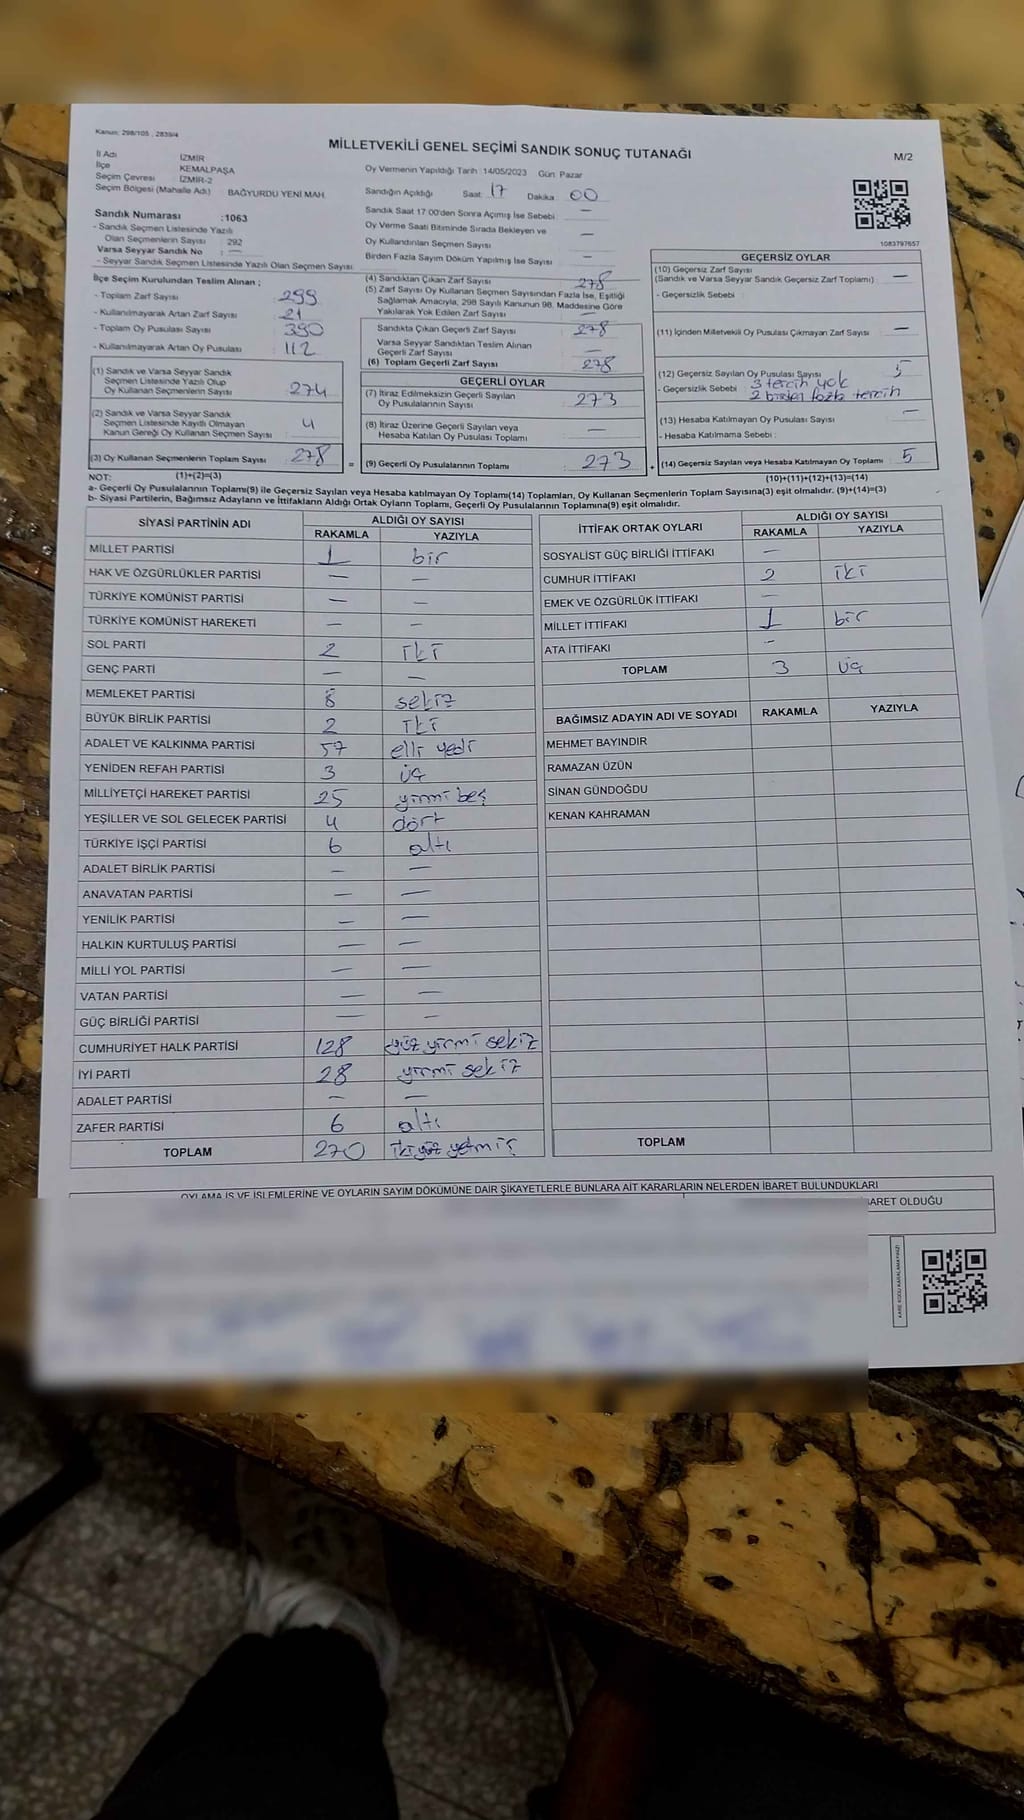 Kanun: 298/105 , 2839/4
MİLLETVEKİLİ GENEL SEÇİMİ SANDIK SONUÇ TUTANAĞI
M/2
İl Adı İZMİR
İlçe KEMALPAŞA
Seçim Çevresi İZMİR-2
Seçim Bölgesi (Mahalle Adı) BAĞYURDU YENİ MAH.
Oy Vermenin Yapıldığı Tarih :14/05/2023 Gün: Pazar
Sandığın Açıldığı Saat 17 Dakika 00
Sandık Saat 17:00'den Sonra Açımış İse Sebebi —
Oy Verme Saati Bitiminde Sırada Bekleyen ve
Oy Kullandırılan Seçmen Sayısı —
Birden Fazla Sayım Döküm Yapılmış İse Sayısı —
1083797657
Sandık Numarası :1063
- Sandık Seçmen Listesinde Yazılı
Olan Seçmenlerin Sayısı 292
Varsa Seyyar Sandık No : —
- Seyyar Sandık Seçmen Listesinde Yazılı Olan Seçmen Sayısı
İlçe Seçim Kurulundan Teslim Alınan ;
- Toplam Zarf Sayısı 299
- Kullanılmayarak Artan Zarf Sayısı 21
- Toplam Oy Pusulası Sayısı 390
- Kullanılmayarak Artan Oy Pusulası 112
(1) Sandık ve Varsa Seyyar Sandık
Seçmen Listesinde Yazılı Olup
Oy Kullanan Seçmenlerin Sayısı 274
(2) Sandık ve Varsa Seyyar Sandık
Seçmen Listesinde Kayıtlı Olmayan
Kanun Gereği Oy Kullanan Seçmen Sayısı : 4
(3) Oy Kullanan Seçmenlerin Toplam Sayısı 278
(4) Sandıktan Çıkan Zarf Sayısı 278
(5) Zarf Sayısı Oy Kullanan Seçmen Sayısından Fazla İse, Eşitliği
Sağlamak Amacıyla, 298 Sayılı Kanunun 98. Maddesine Göre
Yakılarak Yok Edilen Zarf Sayısı —
Sandıkta Çıkan Geçerli Zarf Sayısı 278
Varsa Seyyar Sandıktan Teslim Alınan
Geçerli Zarf Sayısı —
(6) Toplam Geçerli Zarf Sayısı 278
GEÇERLİ OYLAR
(7) İtiraz Edilmeksizin Geçerli Sayılan
Oy Pusulalarının Sayısı : 273
(8) İtiraz Üzerine Geçerli Sayılan veya
Hesaba Katılan Oy Pusulası Toplamı —
= (9) Geçerli Oy Pusulalarının Toplamı : 273
GEÇERSİZ OYLAR
(10) Geçersiz Zarf Sayısı
(Sandık ve Varsa Seyyar Sandık Geçersiz Zarf Toplamı) —
- Geçersizlik Sebebi :
(11) İçinden Milletvekili Oy Pusulası Çıkmayan Zarf Sayısı —
(12) Geçersiz Sayılan Oy Pusulası Sayısı 5
- Geçersizlik Sebebi : 3 tercih yok
2 birden fazla tercih
(13) Hesaba Katılmayan Oy Pusulası Sayısı —
- Hesaba Katılmama Sebebi :
+ (14) Geçersiz Sayılan veya Hesaba Katılmayan Oy Toplamı 5
NOT: (1)+(2)=(3)
(10)+(11)+(12)+(13)=(14)
a- Geçerli Oy Pusulalarının Toplamı(9) ile Geçersiz Sayılan veya Hesaba katılmayan Oy Toplamı(14) Toplamları, Oy Kullanan Seçmenlerin Toplam Sayısına(3) eşit olmalıdır. (9)+(14)=(3)
b- Siyasi Partilerin, Bağımsız Adayların ve İttifakların Aldığı Ortak Oyların Toplamı, Geçerli Oy Pusulalarının Toplamına(9) eşit olmalıdır.
SİYASİ PARTİNİN ADI ALDIĞI OY SAYISI
RAKAMLA YAZIYLA
MİLLET PARTİSİ 1 bir
HAK VE ÖZGÜRLÜKLER PARTİSİ — —
TÜRKİYE KOMÜNİST PARTİSİ — —
TÜRKİYE KOMÜNİST HAREKETİ — —
SOL PARTİ 2 iki
GENÇ PARTİ — —
MEMLEKET PARTİSİ 8 sekiz
BÜYÜK BİRLİK PARTİSİ 2 iki
ADALET VE KALKINMA PARTİSİ 57 elli yedi
YENİDEN REFAH PARTİSİ 3 üç
MİLLİYETÇİ HAREKET PARTİSİ 25 yirmi beş
YEŞİLLER VE SOL GELECEK PARTİSİ 4 dört
TÜRKİYE İŞÇİ PARTİSİ 6 altı
ADALET BİRLİK PARTİSİ — —
ANAVATAN PARTİSİ — —
YENİLİK PARTİSİ — —
HALKIN KURTULUŞ PARTİSİ — —
MİLLİ YOL PARTİSİ — —
VATAN PARTİSİ — —
GÜÇ BİRLİĞİ PARTİSİ — —
CUMHURİYET HALK PARTİSİ 128 yüz yirmi sekiz
İYİ PARTİ 28 yirmi sekiz
ADALET PARTİSİ — —
ZAFER PARTİSİ 6 altı
TOPLAM 270 iki yüz yetmiş
İTTİFAK ORTAK OYLARI ALDIĞI OY SAYISI
RAKAMLA YAZIYLA
SOSYALİST GÜÇ BİRLİĞİ İTTİFAKI —
CUMHUR İTTİFAKI 2 iki
EMEK VE ÖZGÜRLÜK İTTİFAKI —
MİLLET İTTİFAKI 1 bir
ATA İTTİFAKI —
TOPLAM 3 üç
BAĞIMSIZ ADAYIN ADI VE SOYADI RAKAMLA YAZIYLA
MEHMET BAYINDIR
RAMAZAN ÜZÜN
SİNAN GÜNDOĞDU
KENAN KAHRAMAN
TOPLAM
OYLAMA İŞ VE İŞLEMLERİNE VE OYLARIN SAYIM DÖKÜMÜNE DAİR ŞİKAYETLERLE BUNLARA AİT KARARLARIN NELERDEN İBARET BULUNDUKLARI
BARET OLDUĞU
KARE KODU KARALAMAYINIZ!